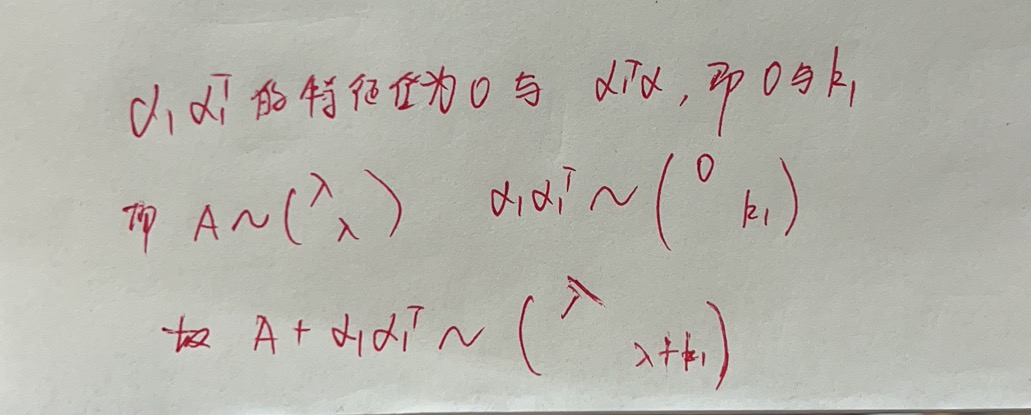 α₁α₁ᵀ的特征值为0与 α₁ᵀα,即0与k₁
即 A~(λ λ) α₁α₁ᵀ~(0 k₁)
故 A+α₁α₁ᵀ~(λ λ+k₁)